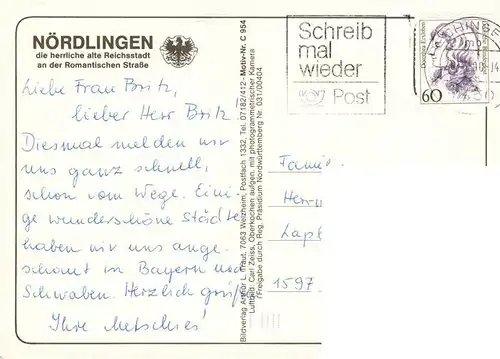 NÖRDLINGEN
die herrliche alte Reichsstadt
an der Romantischen Straße
Liebe Frau Britz,
lieber Herr Britz!
Diesmal melden wir
uns ganz schnell,
schon vom Wege. Eini-
ge wunderschöne Städte
haben wir uns ange-
schaut in Bayern und
Schwaben. Herzlich grüß
Ihre
Bildverlag Arthur L. Traut, 7063 Welzheim, Postfach 1332, Tel. 07182/412 - Motiv-Nr. C 954
Luftbild: Carl Zeiss, Oberkochen aufgen. mit photogrammetrischer Kamera
(Freigabe durch Reg. Präsidium Nordwürttemberg Nr. 031/00404
Schreib
mal
wieder
Post
60
Fami
Herrn
1597